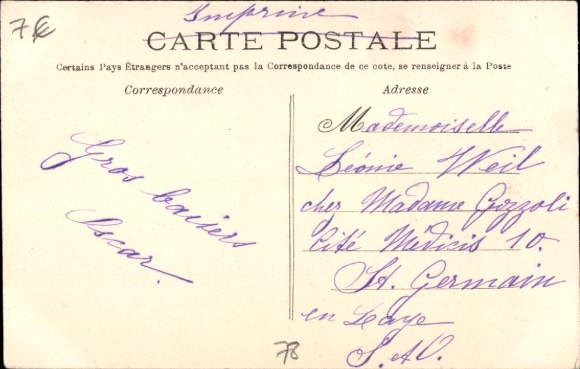 7€
Imprimé
CARTE POSTALE
Certains Pays Étrangers n'acceptant pas la Correspondance de ce cote, se renseigner à la Poste
Correspondance
Gros baisers
Oscar.
Adresse
Mademoiselle
Léonie Weil
chez Madame Gozzoli
Cité Médicis 10.
St. Germain
en Laye
S. et O.
78